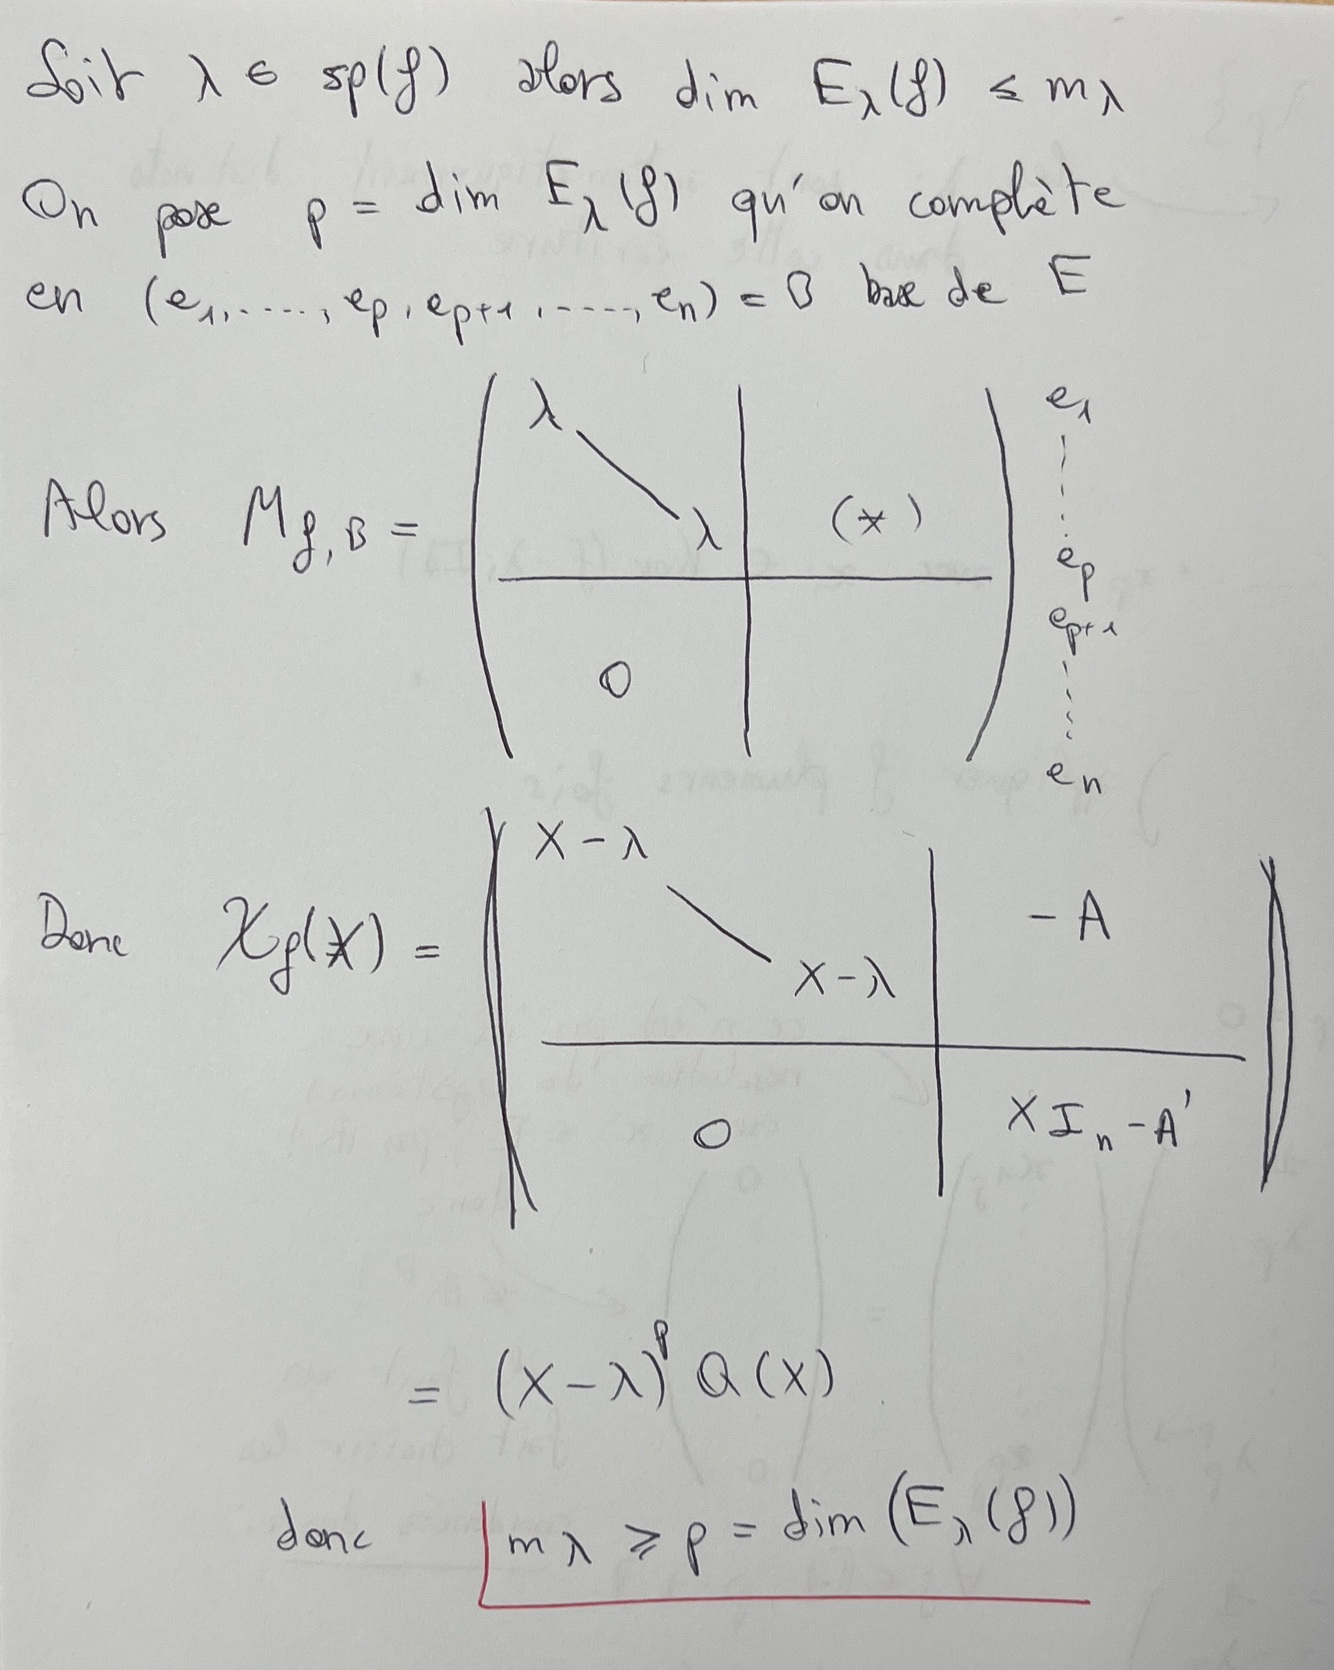 Soit λ ∈ sp(f) alors dim E_λ(f) ≤ m_λ
On pose p = dim E_λ(f) qu'on complète
en (e_1,....., e_p, e_{p+1},....., e_n) = B base de E
Alors M_{f,B} = ( λ \ λ | (*) ; 0 | ) e_1 ... e_p e_{p+1} ... e_n
Donc χ_f(X) = | X-λ \ X-λ | -A ; 0 | X I_n - A' |
= (X-λ)^p Q(X)
donc m_λ ⩾ p = dim (E_λ(f))